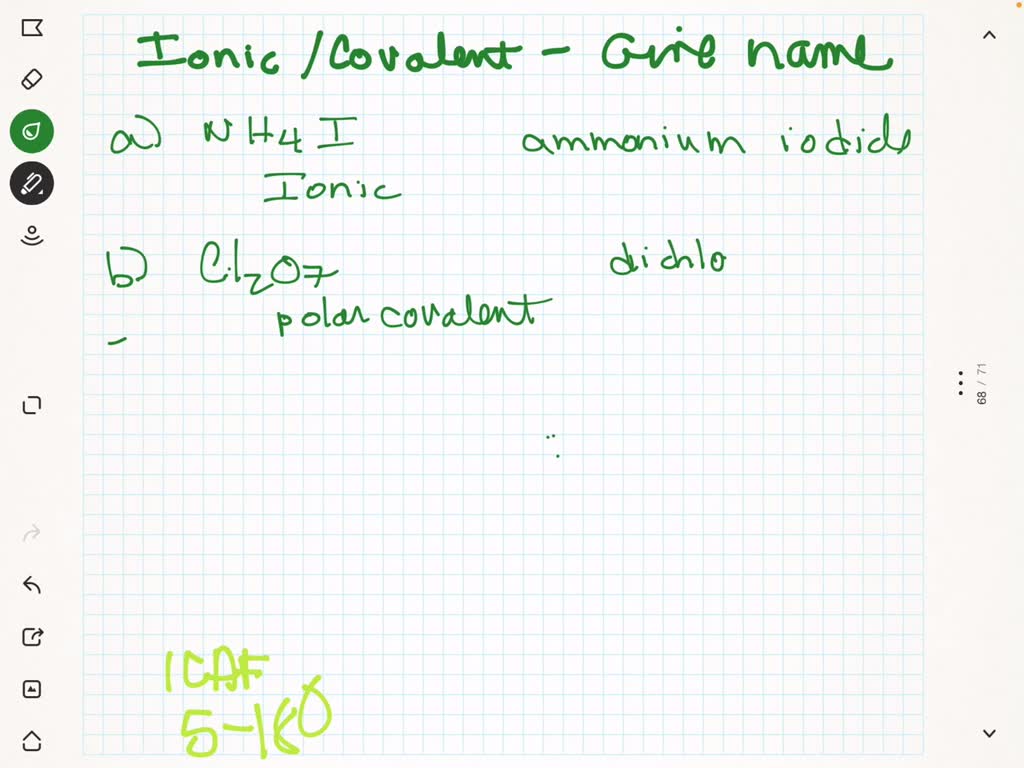 Ionic / Covalent - Give name
a) NH4I ammonium iodide
Ionic
b) Cl2O7 dichlo
polar covalent
68 / 71
ICAF
5-180